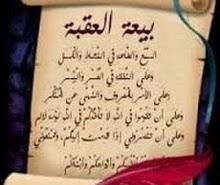 بيعة العقبة
السمع والطاعة في النشاط والكسل
وعلى النفقة في العسر واليسر
وعلى الأمر بالمعروف والنهي عن المنكر
وعلى أن تقولوا في الله لا تأخذكم في الله لومة لائم
وعلى أن تنصروني إذا قدمت إليكم، وتمنعوني
أنفسكم وأزواجكم وأبناءكم